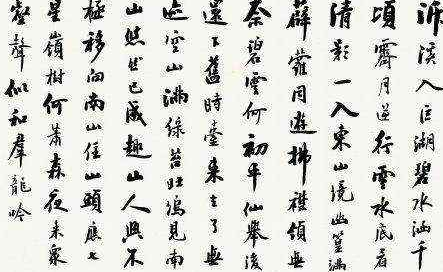 泝溪入巨湖碧水涵千
頃霽月送行雲水底看
清影一入東山境幽篁滿
薜蘿同遊拂襟領無
奈碧雲何初平仙舉後
還下舊時臺來去了無
迹空山滿綠苔塢見南
山悠然已成趣山人興不
極移向南山住山頭應七
星嶺樹何蕭森夜來眾
壑聲似和羣龍吟